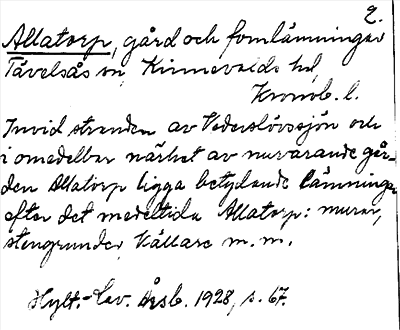 2.
Allatorp, gård och fornlämningar
Tävelsås sn, Kinnevalds hd,
Kronob. l.
Invid stranden av Vederslövssjön och
i omedelbar närhet av nuvarande går-
den Allatorp ligga betydande lämningar
efter det medeltida Allatorp: murar,
stengrunder, källare m.m.
Hylt.-Cav. Årsb. 1928, s. 67.